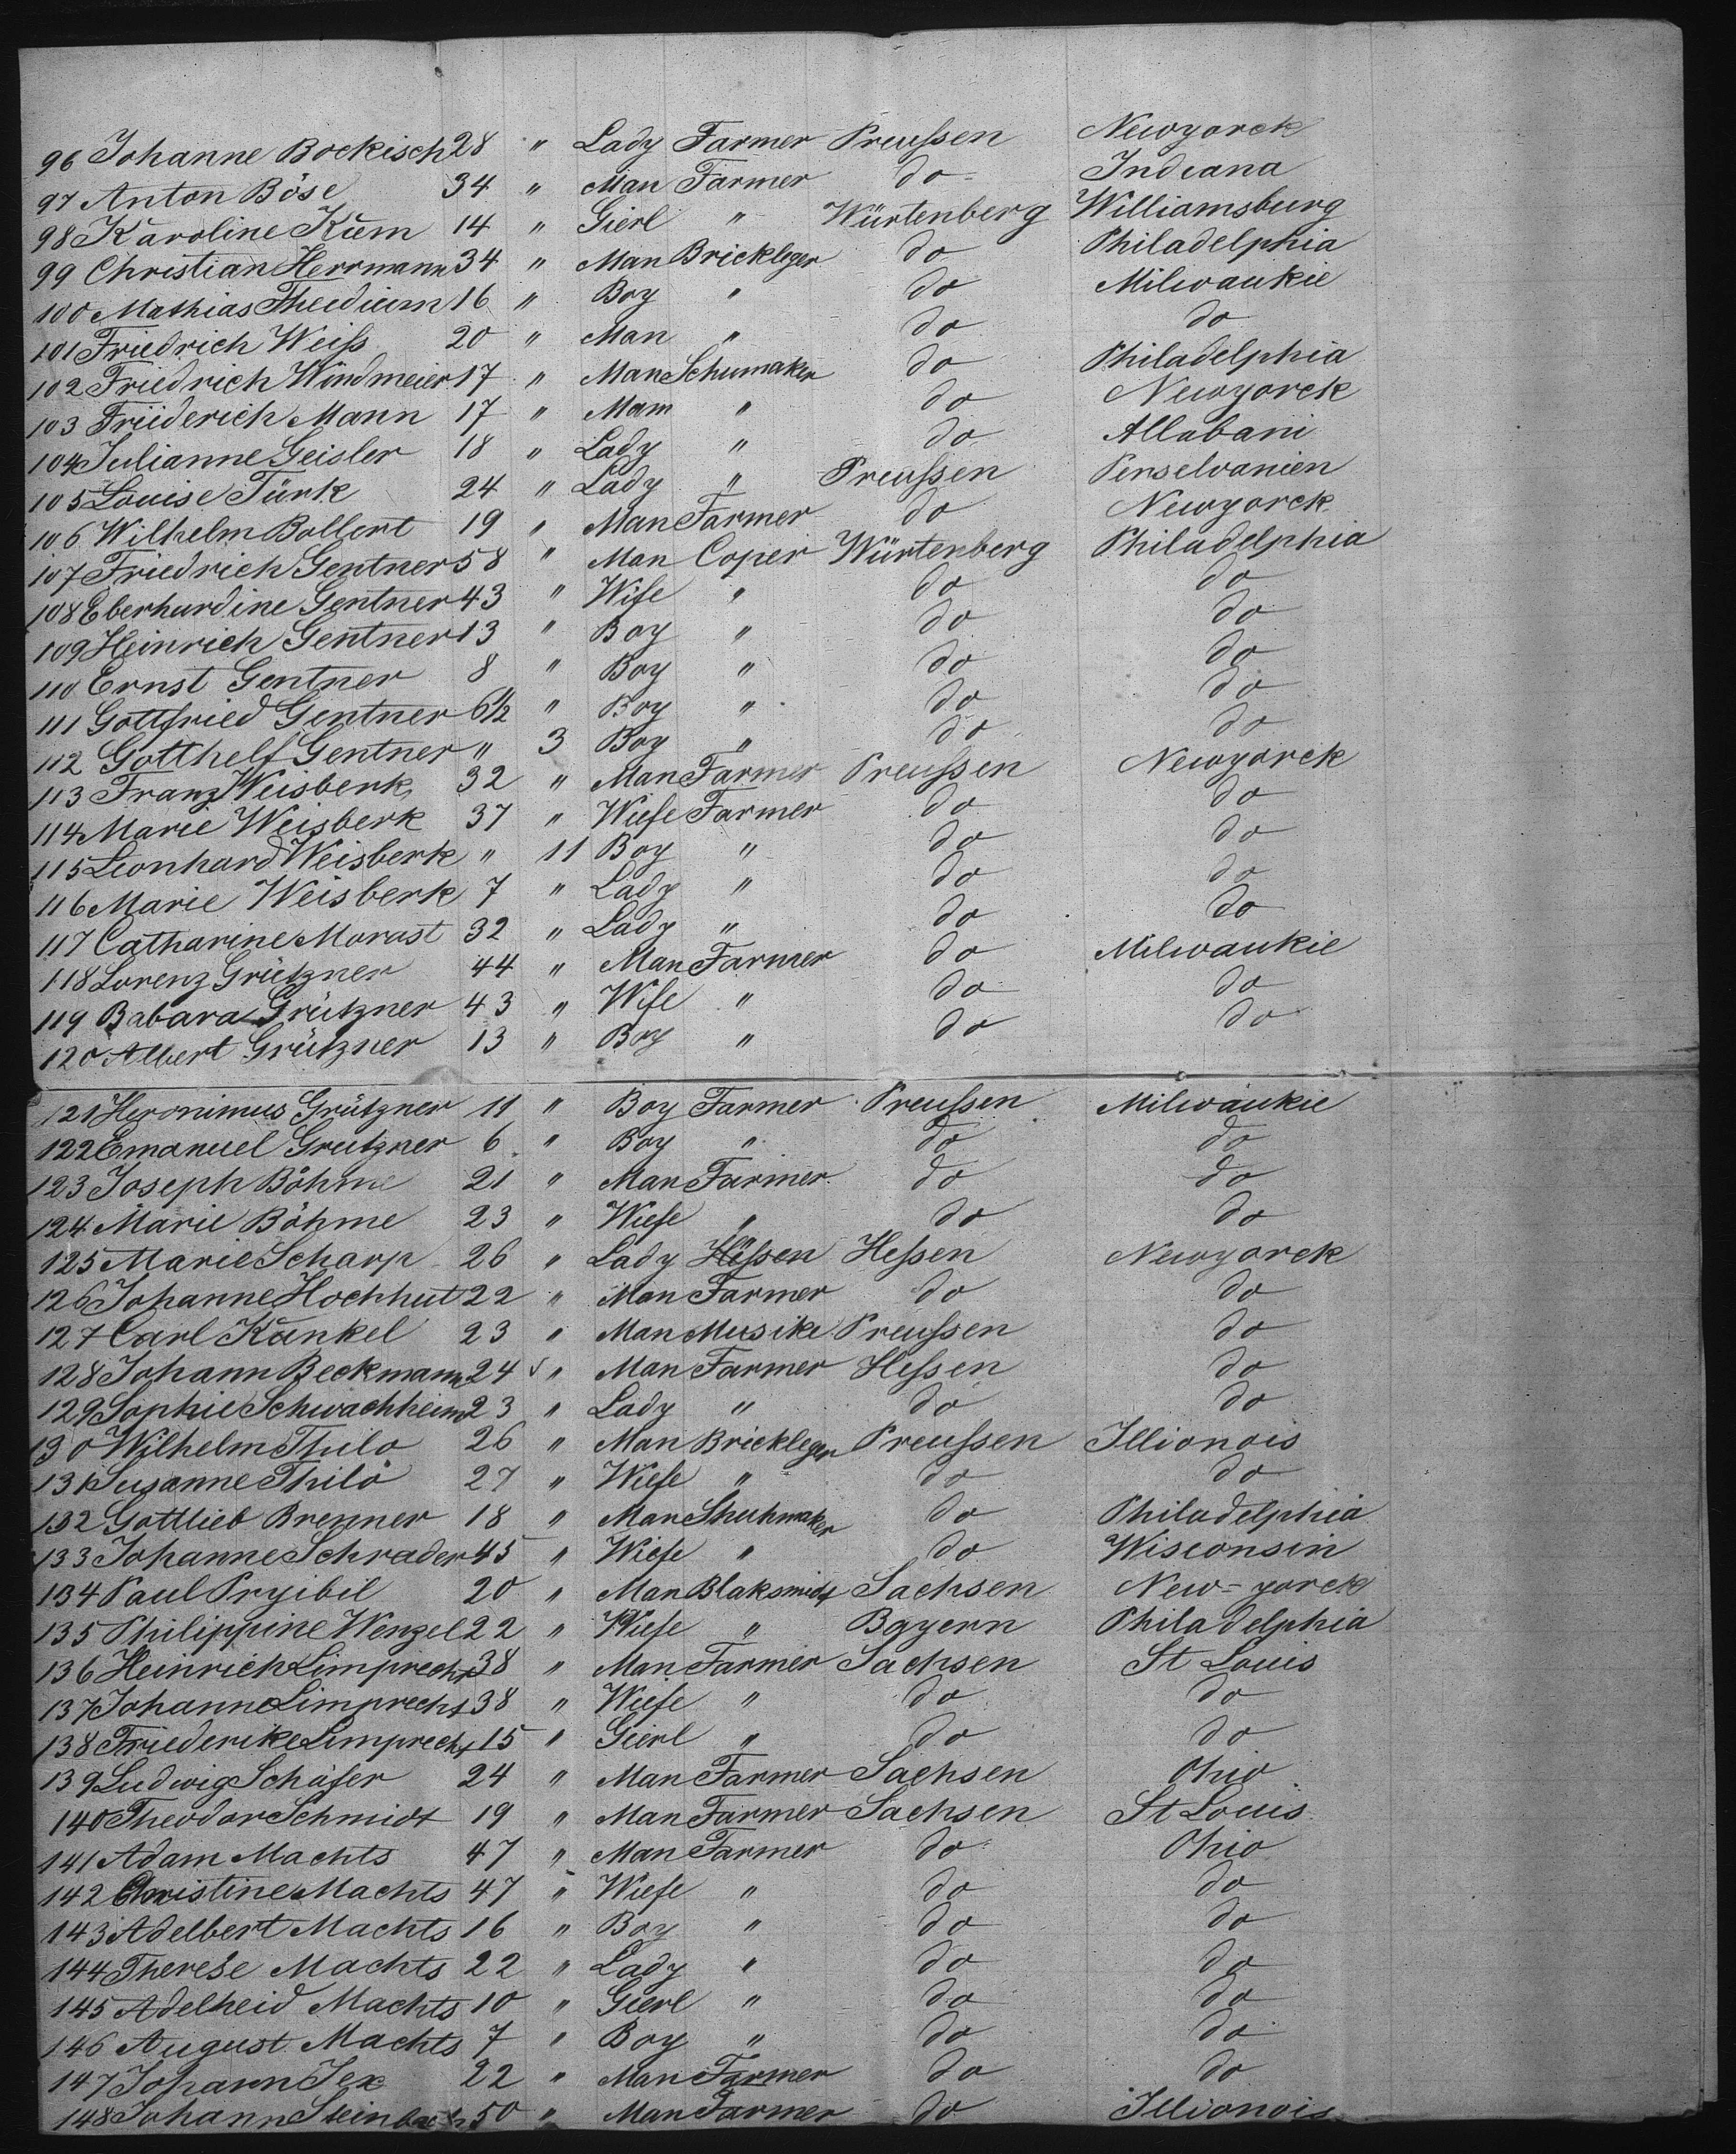 96 Johanne Bockisch 28 " Lady Farmer Preußen Newyorck
97 Anton Böse 34 " Man Farmer do Indiana
98 Karoline Kūm 14 " Gierl " Würtenberg Williamsburg
99 Christian Herrmann 34 " Man Brickleger do Philadelphia
100 Mathias Thedium 16 " Boy " do Milwaukie
101 Friedrich Weiß 20 " Man " do do
102 Friedrich Windmeier 17 " Man Schumaker do Philadelphia
103 Friederich Mann 17 " Mam " do Newyorck
104 Julianne Geisler 18 " Lady " do Allabani
105 Louise Türk 24 " Lady " Preußen Penselvanien
106 Wilhelm Bollert 19 " Man Farmer do Newyorck
107 Friedrich Gentner 58 " Man Coper Würtenberg Philadelphia
108 Eberhardine Gentner 43 " Wife " do do
109 Heinrich Gentner 13 " Boy " do do
110 Ernst Gentner 8 " Boy " do do
111 Gottfried Gentner 6½ " Boy " do do
112 Gotthelf Gentner " 3 Boy " do do
113 Franz Weisberk 32 " Man Farmer Preußen Newyorck
114 Marie Weisberk 37 " Wiefe Farmer do do
115 Leonhard Weisberk " 11 Boy " do do
116 Marie Weisberk 7 " Lady " do do
117 Catharine Morast 32 " Lady " do do
118 Lorenz Grützner 44 " Man Farmer do Milwaukie
119 Babara Grützner 43 " Wife " do do
120 Albert Grützner 13 " Boy " do do
121 Heronimus Grützner 11 " Boy Farmer Preußen Milwaukie
122 Emanuel Grutzner 6 " Boy " do do
123 Joseph Böhme 21 " Man Farmer do do
124 Marie Böhme 23 " Wiefe " do do
125 Marie Scharp 26 " Lady Heßen Heßen Newyorck
126 Johanne Hochhut 22 " Man Farmer do do
127 Carl Kunkel 23 " Man Musike Preußen do
128 Johann Beckmann 24 " Man Farmer Heßen do
129 Sophie Schwachheim 23 " Lady " do do
130 Wilhelm Thilo 26 " Man Brickleger Preußen Illionois
131 Susanne Thilo 27 " Wiefe " do do
132 Gottlieb Brenner 18 " Man Shuhmaker do Philadelphia
133 Johanne Schrader 45 " Wiefe " do Wisconsin
134 Paul Pryibil 20 " Man Blaksmidt Sachsen New-yorck
135 Philippine Wenzel 22 " Wiefe " Bayern Philadelphia
136 Heinrich Limprecht 38 " Man Farmer Sachsen St Louis
137 Johanne Limprecht 38 " Wiefe " do do
138 Friederike Limprecht 15 " Gierl " do do
139 Ludwig Schäfer 24 " Man Farmer Sachsen Ohio
140 Theodor Schmidt 19 " Man Farmer Sachsen St Louis
141 Adam Machts 47 " Man Farmer do Ohio
142 Christine Machts 47 " Wiefe " do do
143 Adelbert Machts 16 " Boy " do do
144 Therese Machts 22 " Lady " do do
145 Adelheid Machts 10 " Gierl " do do
146 August Machts 7 " Boy " do do
147 Johann Jex 22 " Man Farmer do do
148 Johann Steinbach 50 " Man Farmer do Illionois